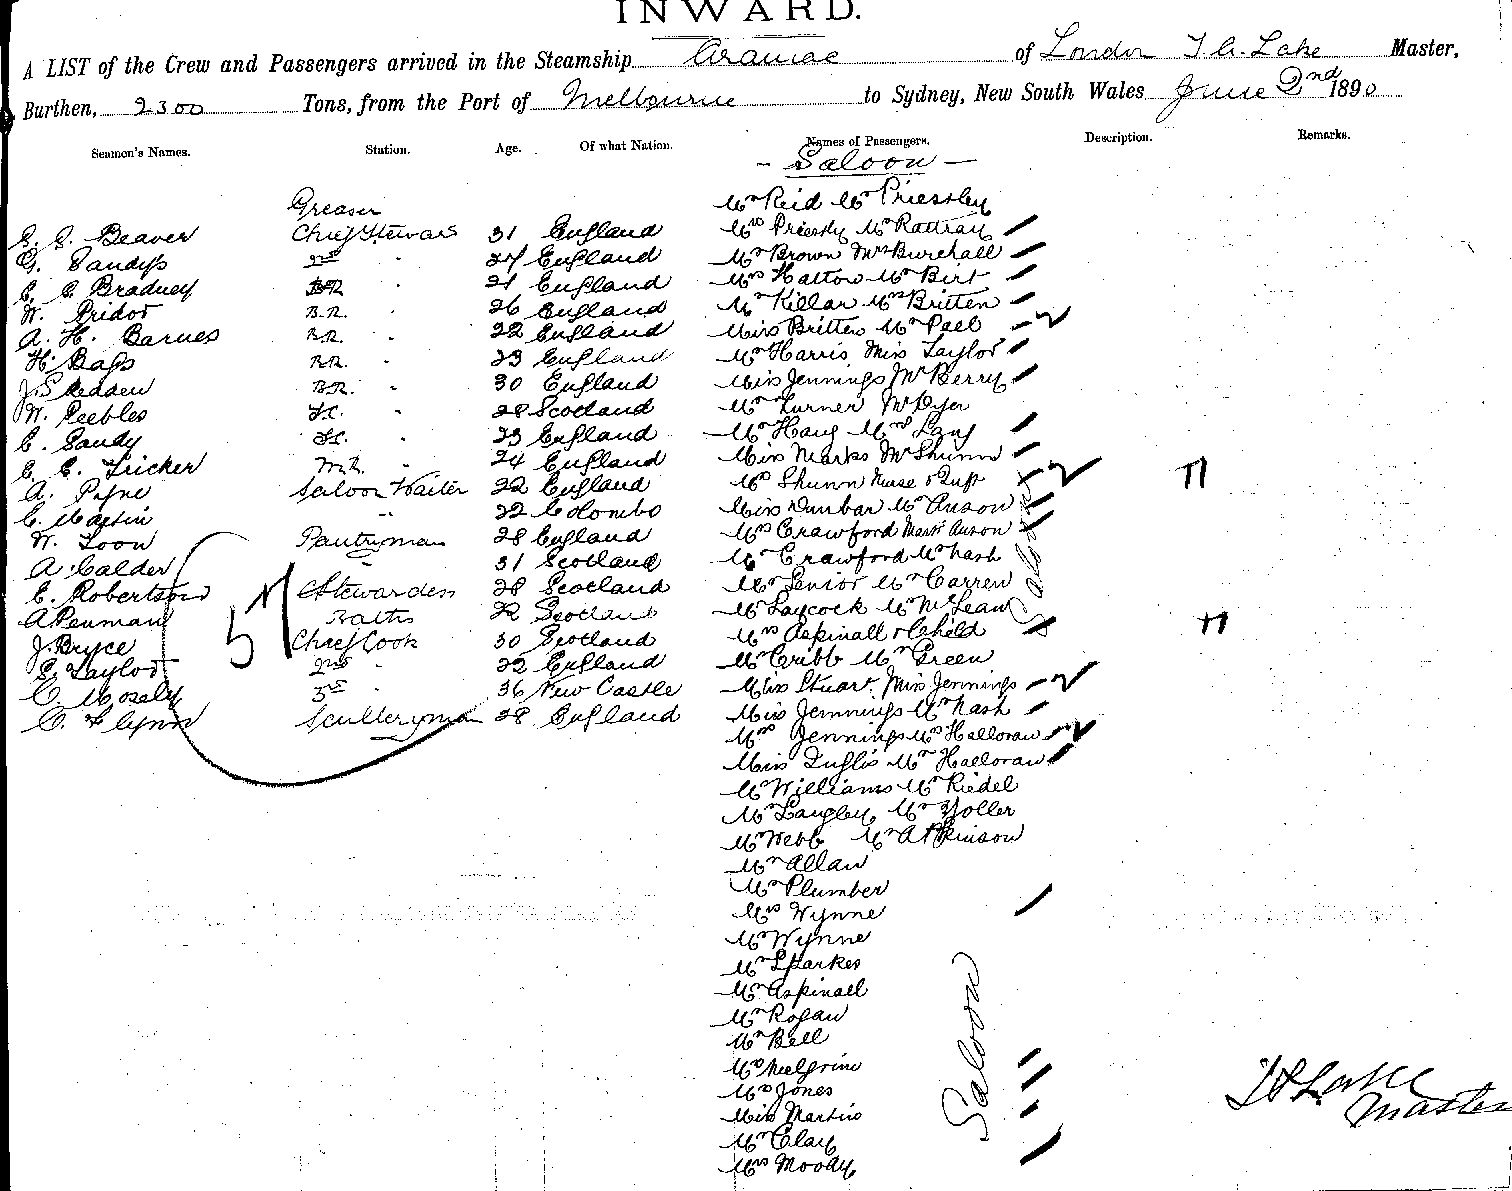 INWARD.
A LIST of the Crew and Passengers arrived in the Steamship Aramac of London T. A. Lake Master,
Burthen, 2300 Tons, from the Port of Melbourne to Sydney, New South Wales June 2nd 1890
Seamen's Names. Station. Age. Of what Nation. Names of Passengers. Description. Remarks.
- Saloon -
Greaser Mr Reid Mr Priestley
Beaver Chief Steward 31 England Mrs Priestly Mr Rattray
G. Sandys 2nd " 24 England Mr Brown Mrs Burchall
Bradney BR " 21 England Mrs Hatton Mr Birt
W. Pridor B.R. " 26 England Mr Killar Mrs Britten
A. H. Barnes B.R. " 22 England Miss Britten Mr Peel
H. Bags B.R. " 23 England Mr Harris Miss Taylor
J. Skedden B.R. " 30 England Miss Jennings Mr Berry
W. Peebles F.C. " 28 Scotland Mr Turner Mr Dyer
C. Sandy F.C. " 23 England Mr Haug Mrs Lang
C. C. Tricker M.R. " 24 England Miss Marks Mr Shunn
A. Pyne Saloon Waiter 22 England Mrs Shunn Nurse & Inft
C. Martin " 22 Colombo Miss Dunbar Mr Anson
W. Toon Pantryman 28 England Mrs Crawford Mastr Anson
A. Calder 31 Scotland Mr Crawford Mr Nash
C. Robertson Stewardess 28 Scotland Mr Senior Mr Carren
A Penman Baths 22 Scotland Mr Laycock Mr McLean
J. Bryce Chief Cook 30 Scotland Mrs Aspinall & Child
E. Taylor 2nd " 22 England Mr Cribb Mr Green
C. Mosely 3rd " 36 New Castle Miss Stuart. Miss Jennings
C. Flynn Sculleryman 28 England Miss Jennings Mr Nash
Mrs Jennings Mrs Halloran
Miss Inglis Mr Halloran
Mr Williams Mr Riedel
Mr Langley Mr Yoller
Mr Webb Mr Atkinson
Mr Allan
Mr Plumber
Mrs Wynne
Mr Wynne
Mr Sparkes
Mr Aspinall
Mr Rogan
Mr Bell
Mrs Jones
Miss Martin
Mr Clay
Mrs Moody
Saloon
Saloon
57
Lake
Master